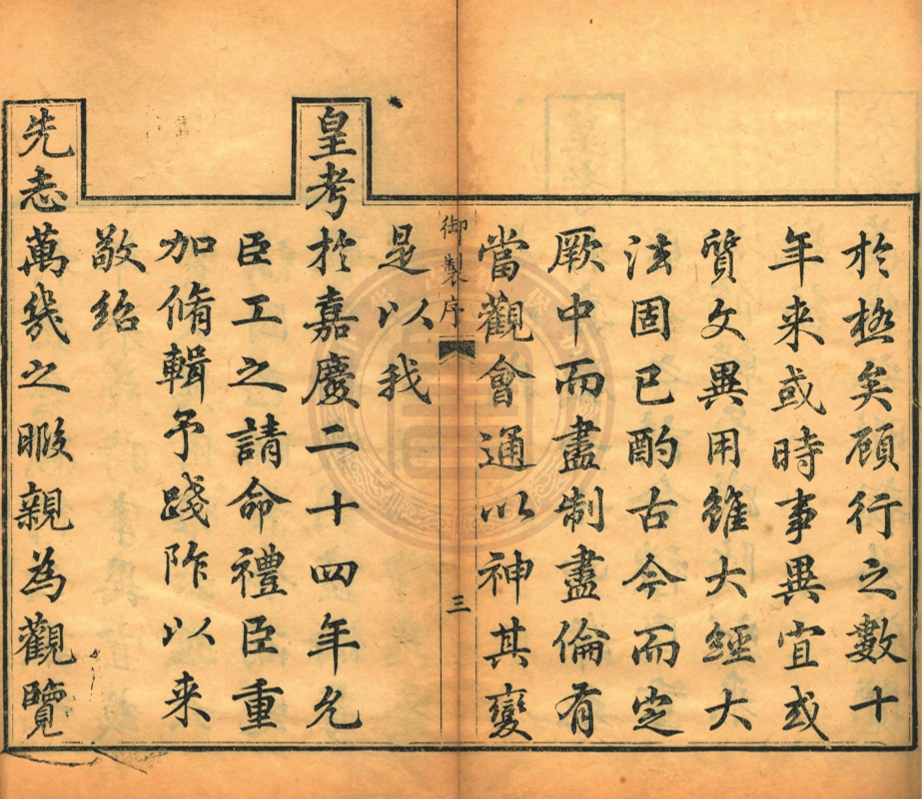 於極矣顧行之數十
年来或時事異宜或
質文異用雖大經大
法固已酌古今而定
厥中而盡制盡倫有
當觀會通以神其變
御製序
三
是以我
皇考於嘉慶二十四年允
臣工之請命禮臣重
加脩輯予踐阼以来
敬紹
先志萬幾之暇親為觀覽